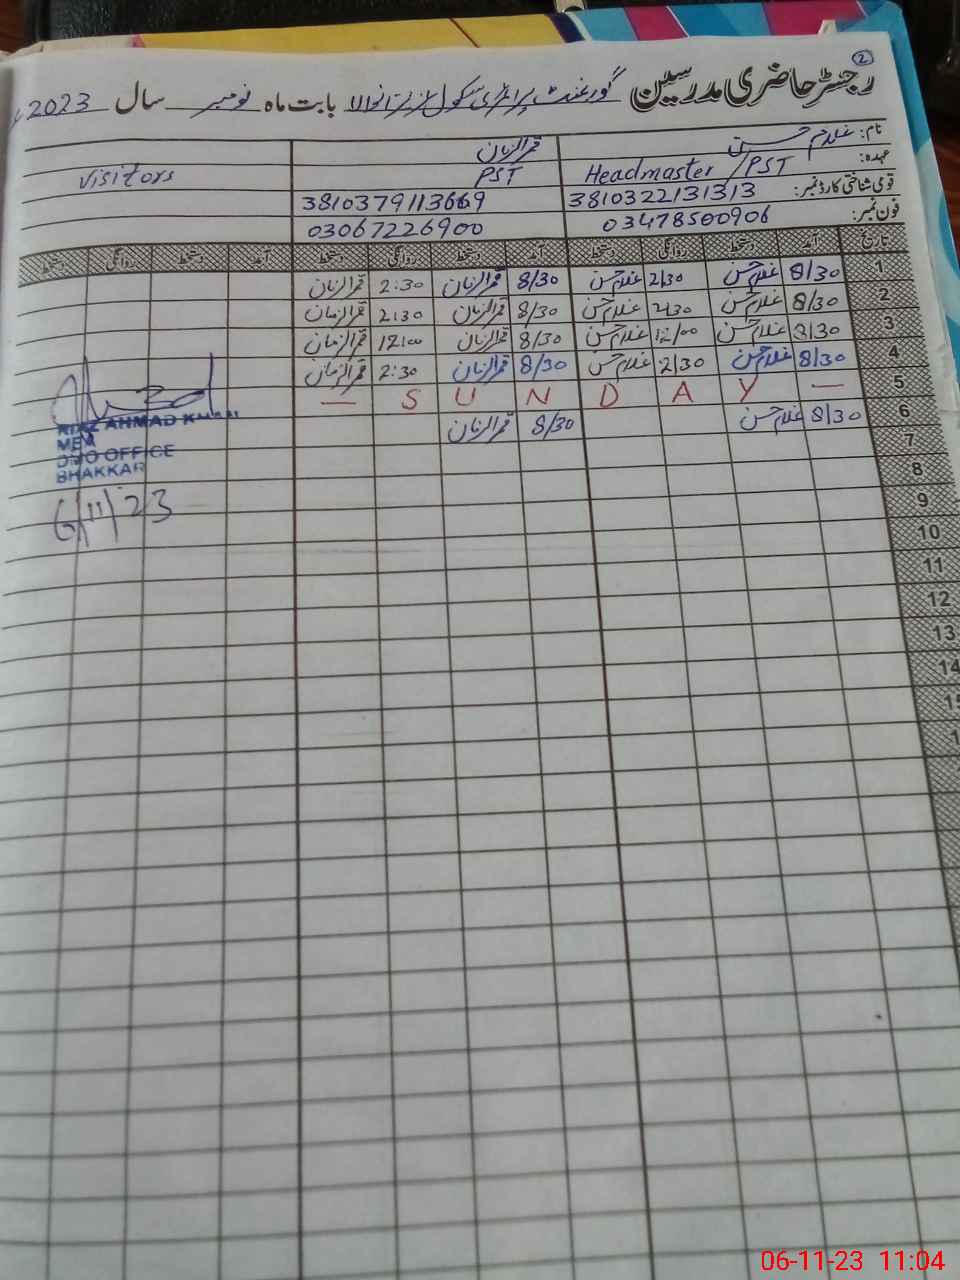 2
رجسٹر حاضری مدرسین گورنمنٹ پرائمری سکول بابت ماہ نومبر سال 2023
نام: غلام حسن قمرالزمان
عہدہ: Headmaster / PST PST Visitors
قومی شناختی کارڈ نمبر: 3810322131313 3810379113669
فون نمبر: 03478500906 03067226900
تاریخ آمد دستخط روانگی دستخط آمد دستخط روانگی دستخط آمد دستخط روانگی دستخط
1 8/30 غلام حسن 2/30 غلام حسن 8/30 قمرالزمان 2:30 قمرالزمان
2 8/30 غلام حسن 2/30 غلام حسن 8/30 قمرالزمان 2:30 قمرالزمان
3 8/30 غلام حسن 12/00 غلام حسن 8/30 قمرالزمان 12:00 قمرالزمان
4 8/30 غلام حسن 2/30 غلام حسن 8/30 قمرالزمان 2:30 قمرالزمان
5 — S U N D A Y —
6 8/30 غلام حسن 8/30 قمرالزمان
RIAZ AHMAD KHAN
MEA
DMO OFFICE
BHAKKAR
6/11/23
7
8
9
10
11
12
13
14
06-11-23 11:04